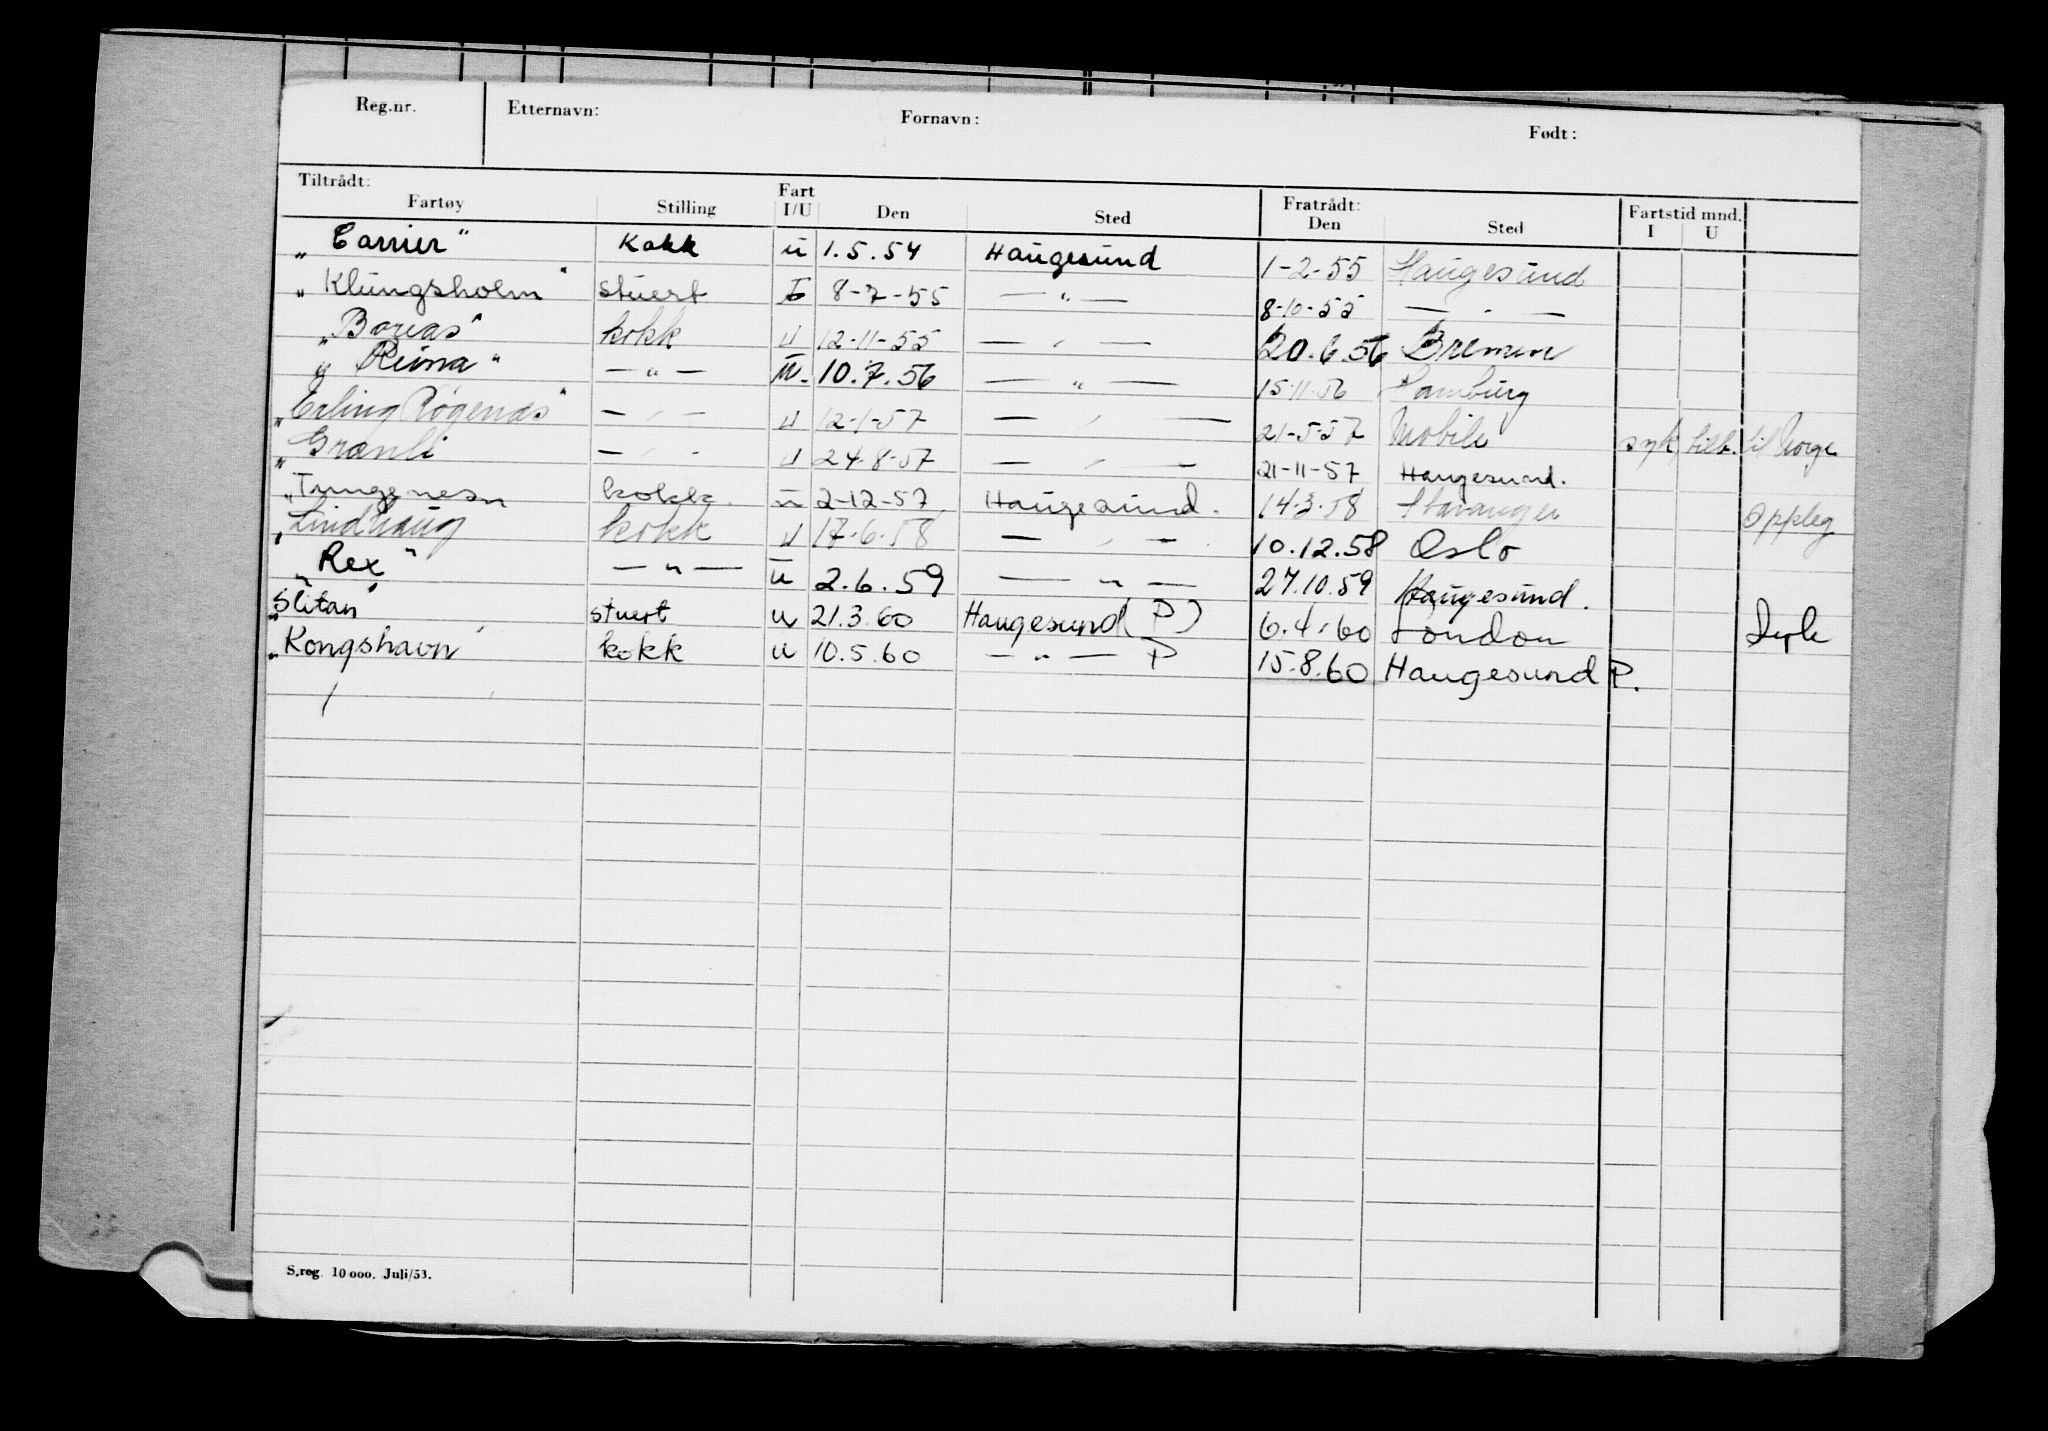 Reg.nr. Etternavn: Fornavn: Født:
Tiltrådt: Fart Fratrådt: Fartstid mnd.
Fartøy Stilling I/U Den Sted Den Sted I U
„Carrier" Kokk u 1.5.54 Haugesund 1-2-55 Haugesund
„Klungsholm" stuert I 8-7-55 — " — 8-10-55 — " —
„Boreas" kokk u 12-11-55 — " — 20.6.56 Bremen
„Reina" — " — u. 10.7.56 — " — 15.11.56 Hamburg
„Erling Røgenæs" — " — u 12-1-57 — " — 21-5-57 Mobile syk, til Norge
„Granli — " — u 24-8-57 — " — 21-11-57 Haugesund.
„Tungenesn kokk. u 2-12-57 Haugesund. 14.3.58 Stavanger Oppleg
„Lindhaug kokk u 17.6.58 — " — 10.12.58 Oslo
„Rex" — " — u 2.6.59 — " — 27.10.59 Haugesund.
„Slitan" stuert u 21.3.60 Haugesund (P) 6.4.60 London Syk
„Kongshavn kokk u 10.5.60 — " — P 15.8.60 Haugesund P.
S.reg. 10 000. Juli/53.